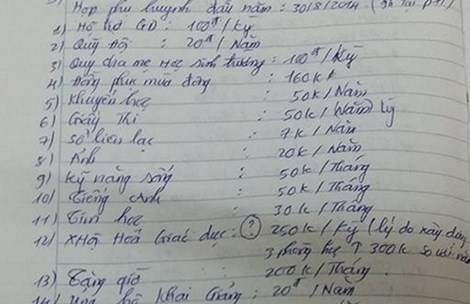 Họp phụ huynh đầy năm : 30/8/2014 (9h tại
1) Hỗ trợ GD : 100đ / Kỳ
2) Quỹ Đội : 20đ / Năm
3) Quỹ cha mẹ Học sinh trường : 100đ / Kỳ
4) Đồng phục mùa đông : 160K
5) Khuyến học : 50K / Năm
6) Giấy Thi : 50K / Năm
7) Sổ liên lạc : 7K / Năm
8) Ảnh : 20K / Năm
9) Kỹ năng sống : 50K / Tháng
10) Tiếng Anh : 50K / Tháng
11) Tin học : 30K / Tháng
12) XHội Hoá Giáo dục : ? 250K / Kỳ (lý do xây dựng
3 phòng học ↑ 300K so với năm
13) Tăng giờ : 200K / Tháng
14) Ủng hộ Khai Giảng : 20đ / Năm